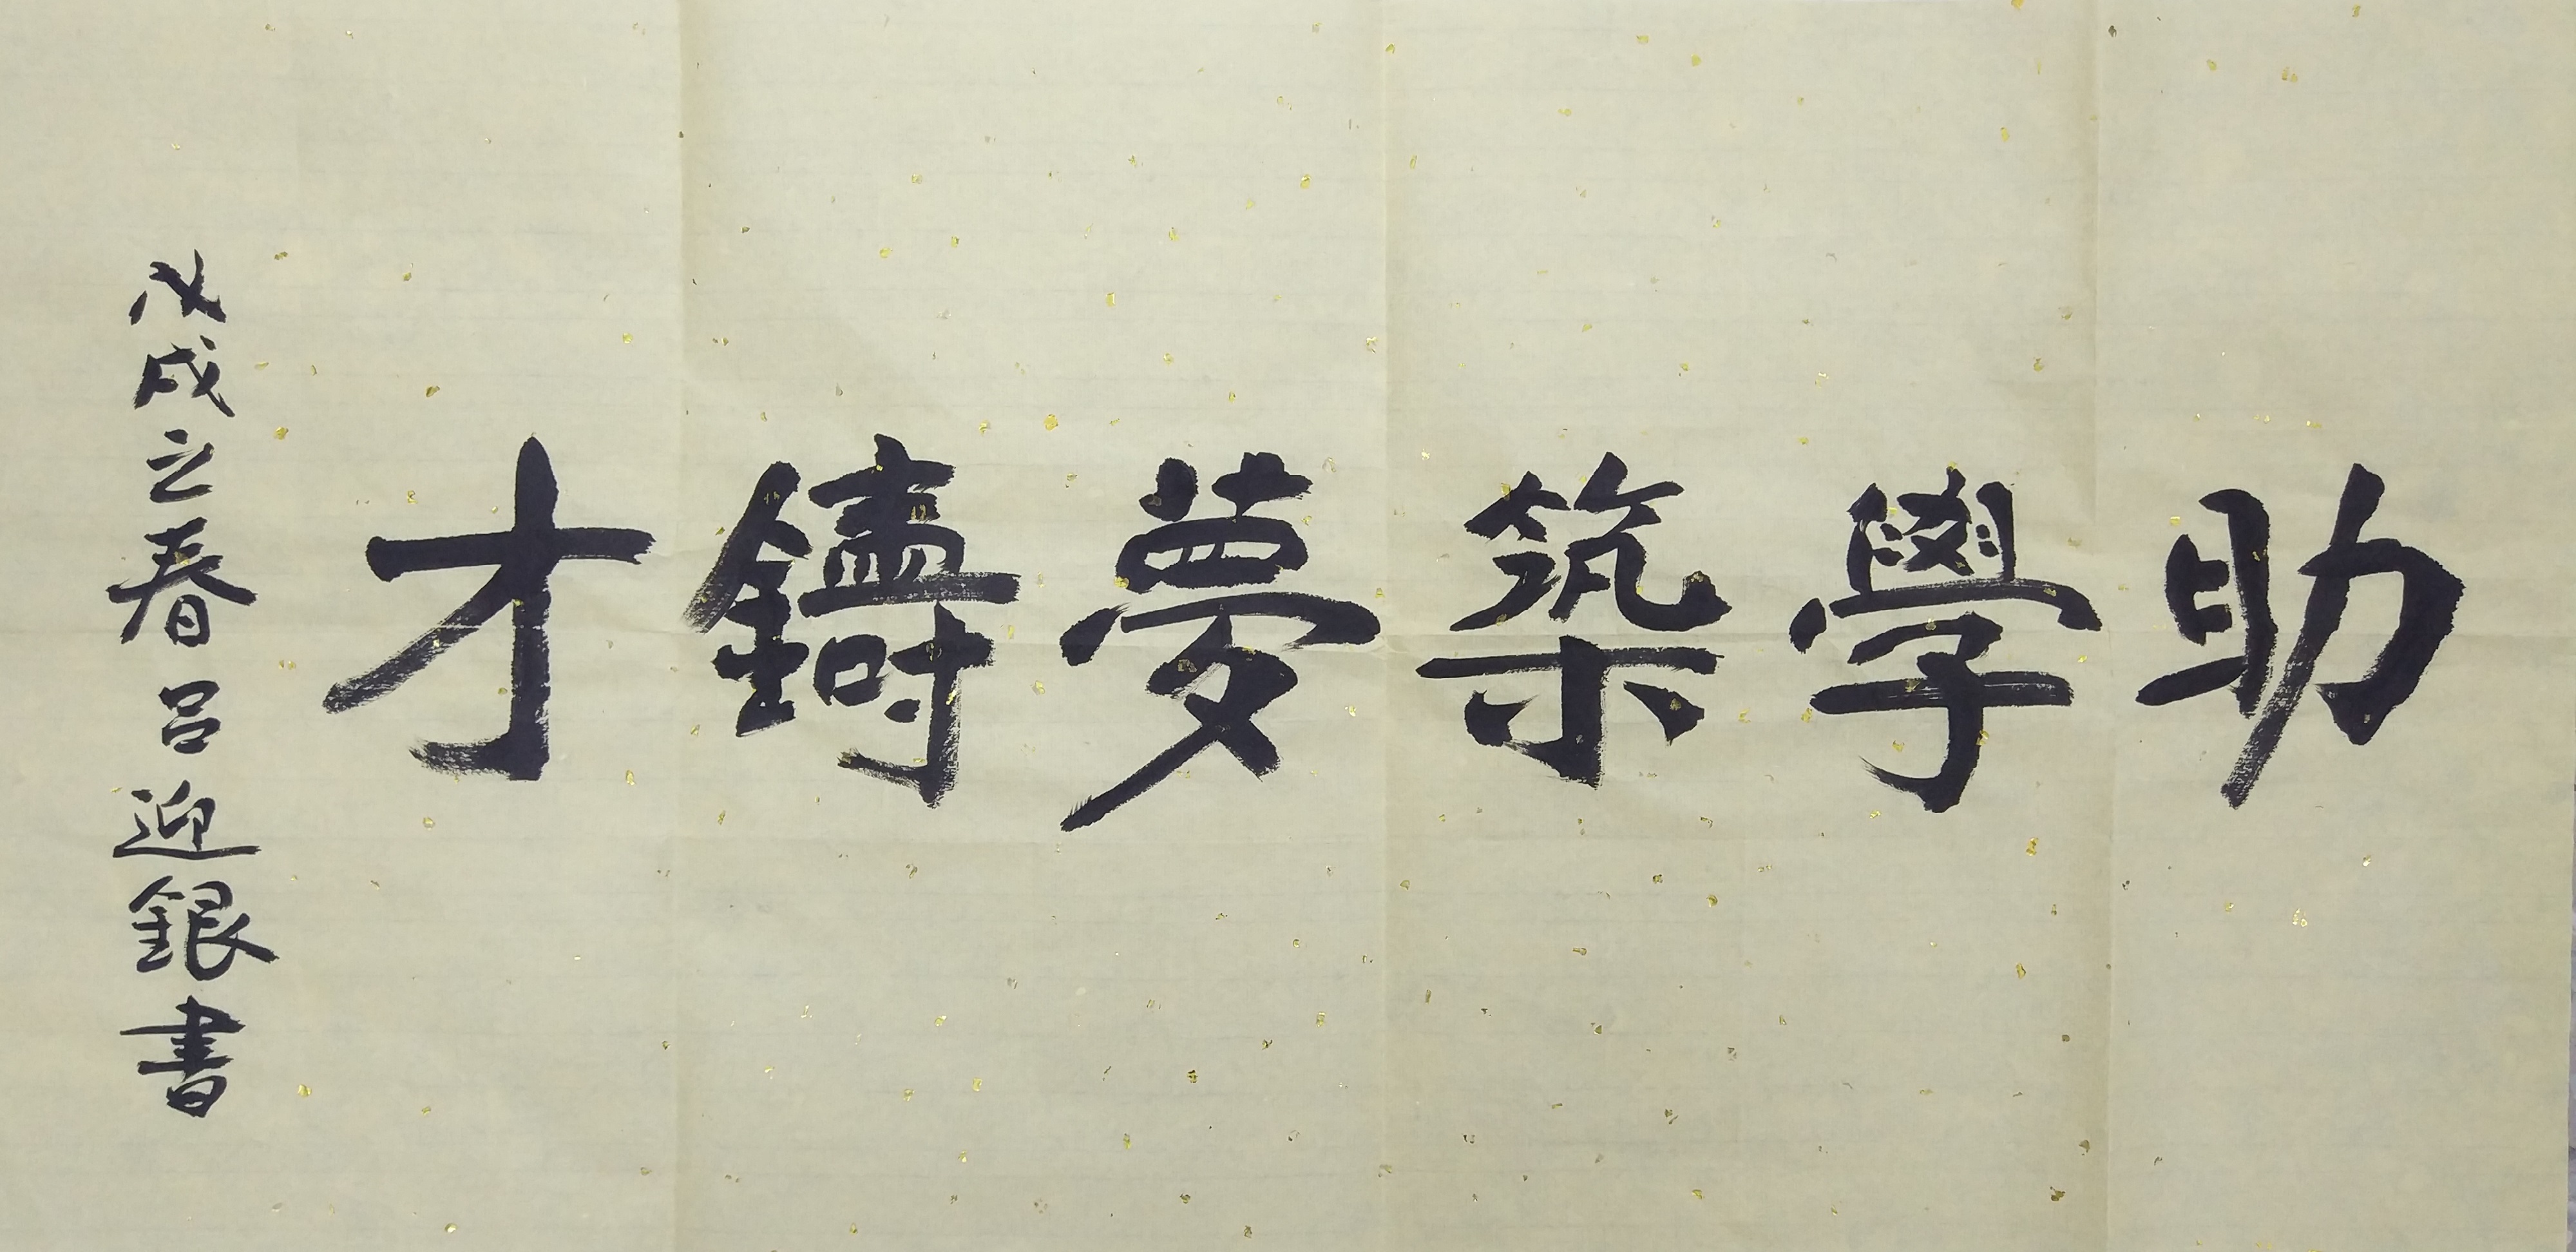 助學築夢鑄才
戊戌之春呂迎銀書